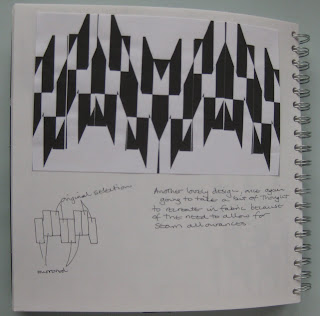 original selection
Another lovely design, once again
going to take a lot of thought
to recreate in fabric because
of the need to allow for
seam allowances.